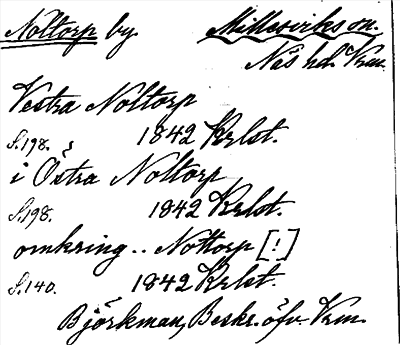 Noltorp by Millesviks sn.
Näs hd. Vrm.
Vestra Noltorp
S.198. 1842 Krlst.
i Östra Noltorp
S.198. 1842 Krlst.
omkring .. Nottorp [!]
S.140. 1842 Krlst.
Björkman, Beskr. öfv. Vrm.